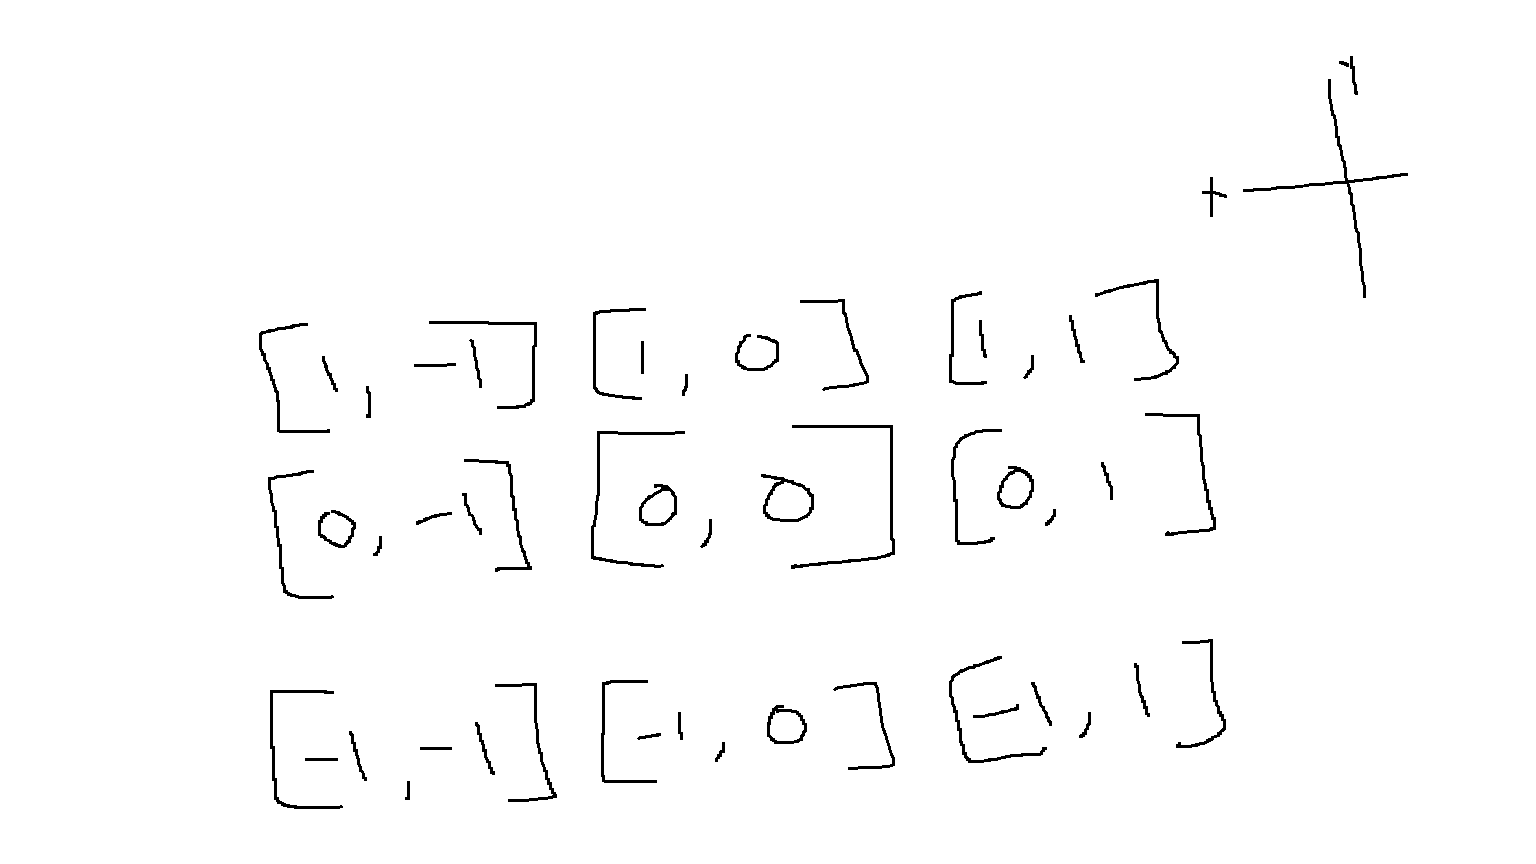 Y
+
[1, -1] [1, 0] [1, 1]
[0, -1] [0, 0] [0, 1]
[-1, -1] [-1, 0] [-1, 1]